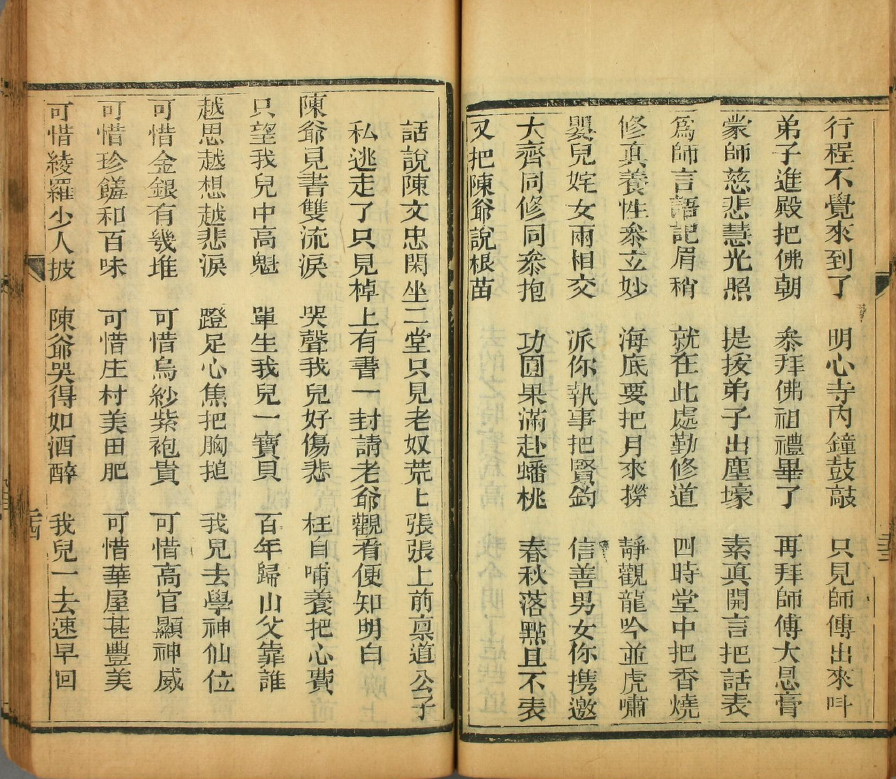 行程不覺來到了　明心寺內鐘鼓敲　只見師傅出來呌
弟子進殿把佛朝　叅拜佛祖禮畢了　再拜師傅大恩膏
蒙師慈悲慧光照　提拔弟子出塵壕　素真開言把話表
爲師言語記眉稍　就在此處勤修道　四時堂中把香燒
修真養性叅立妙　海底要把月來撈　靜觀龍吟並虎嘯
嬰兒姹女兩相交　派你執事把賢鈞　信善男女你携邀
大齊同修同叅抱　功圓果滿赴蟠桃　春秋落㸃且不表
又把陳爺說根苗
話說陳文忠閑坐二堂只見老奴荒上張張上前禀道公子
私逃走了只見棹上有書一封請老爺觀看便知明白
陳爺見書雙流淚　哭聲我兒好傷悲　枉自哺養把心費
只望我兒中高魁　單生我兒一寶貝　百年歸山父靠誰
越思越想越悲淚　蹬足心焦把胸搥　我見去學神仙位
可惜金銀有幾堆　可惜烏紗紫袍貴　可惜高官顯神威
可惜珍饈和百味　可惜庄村美田肥　可惜華屋甚豐美
可惜綾羅少人披　陳爺哭得如酒醉　我兒一去速早回